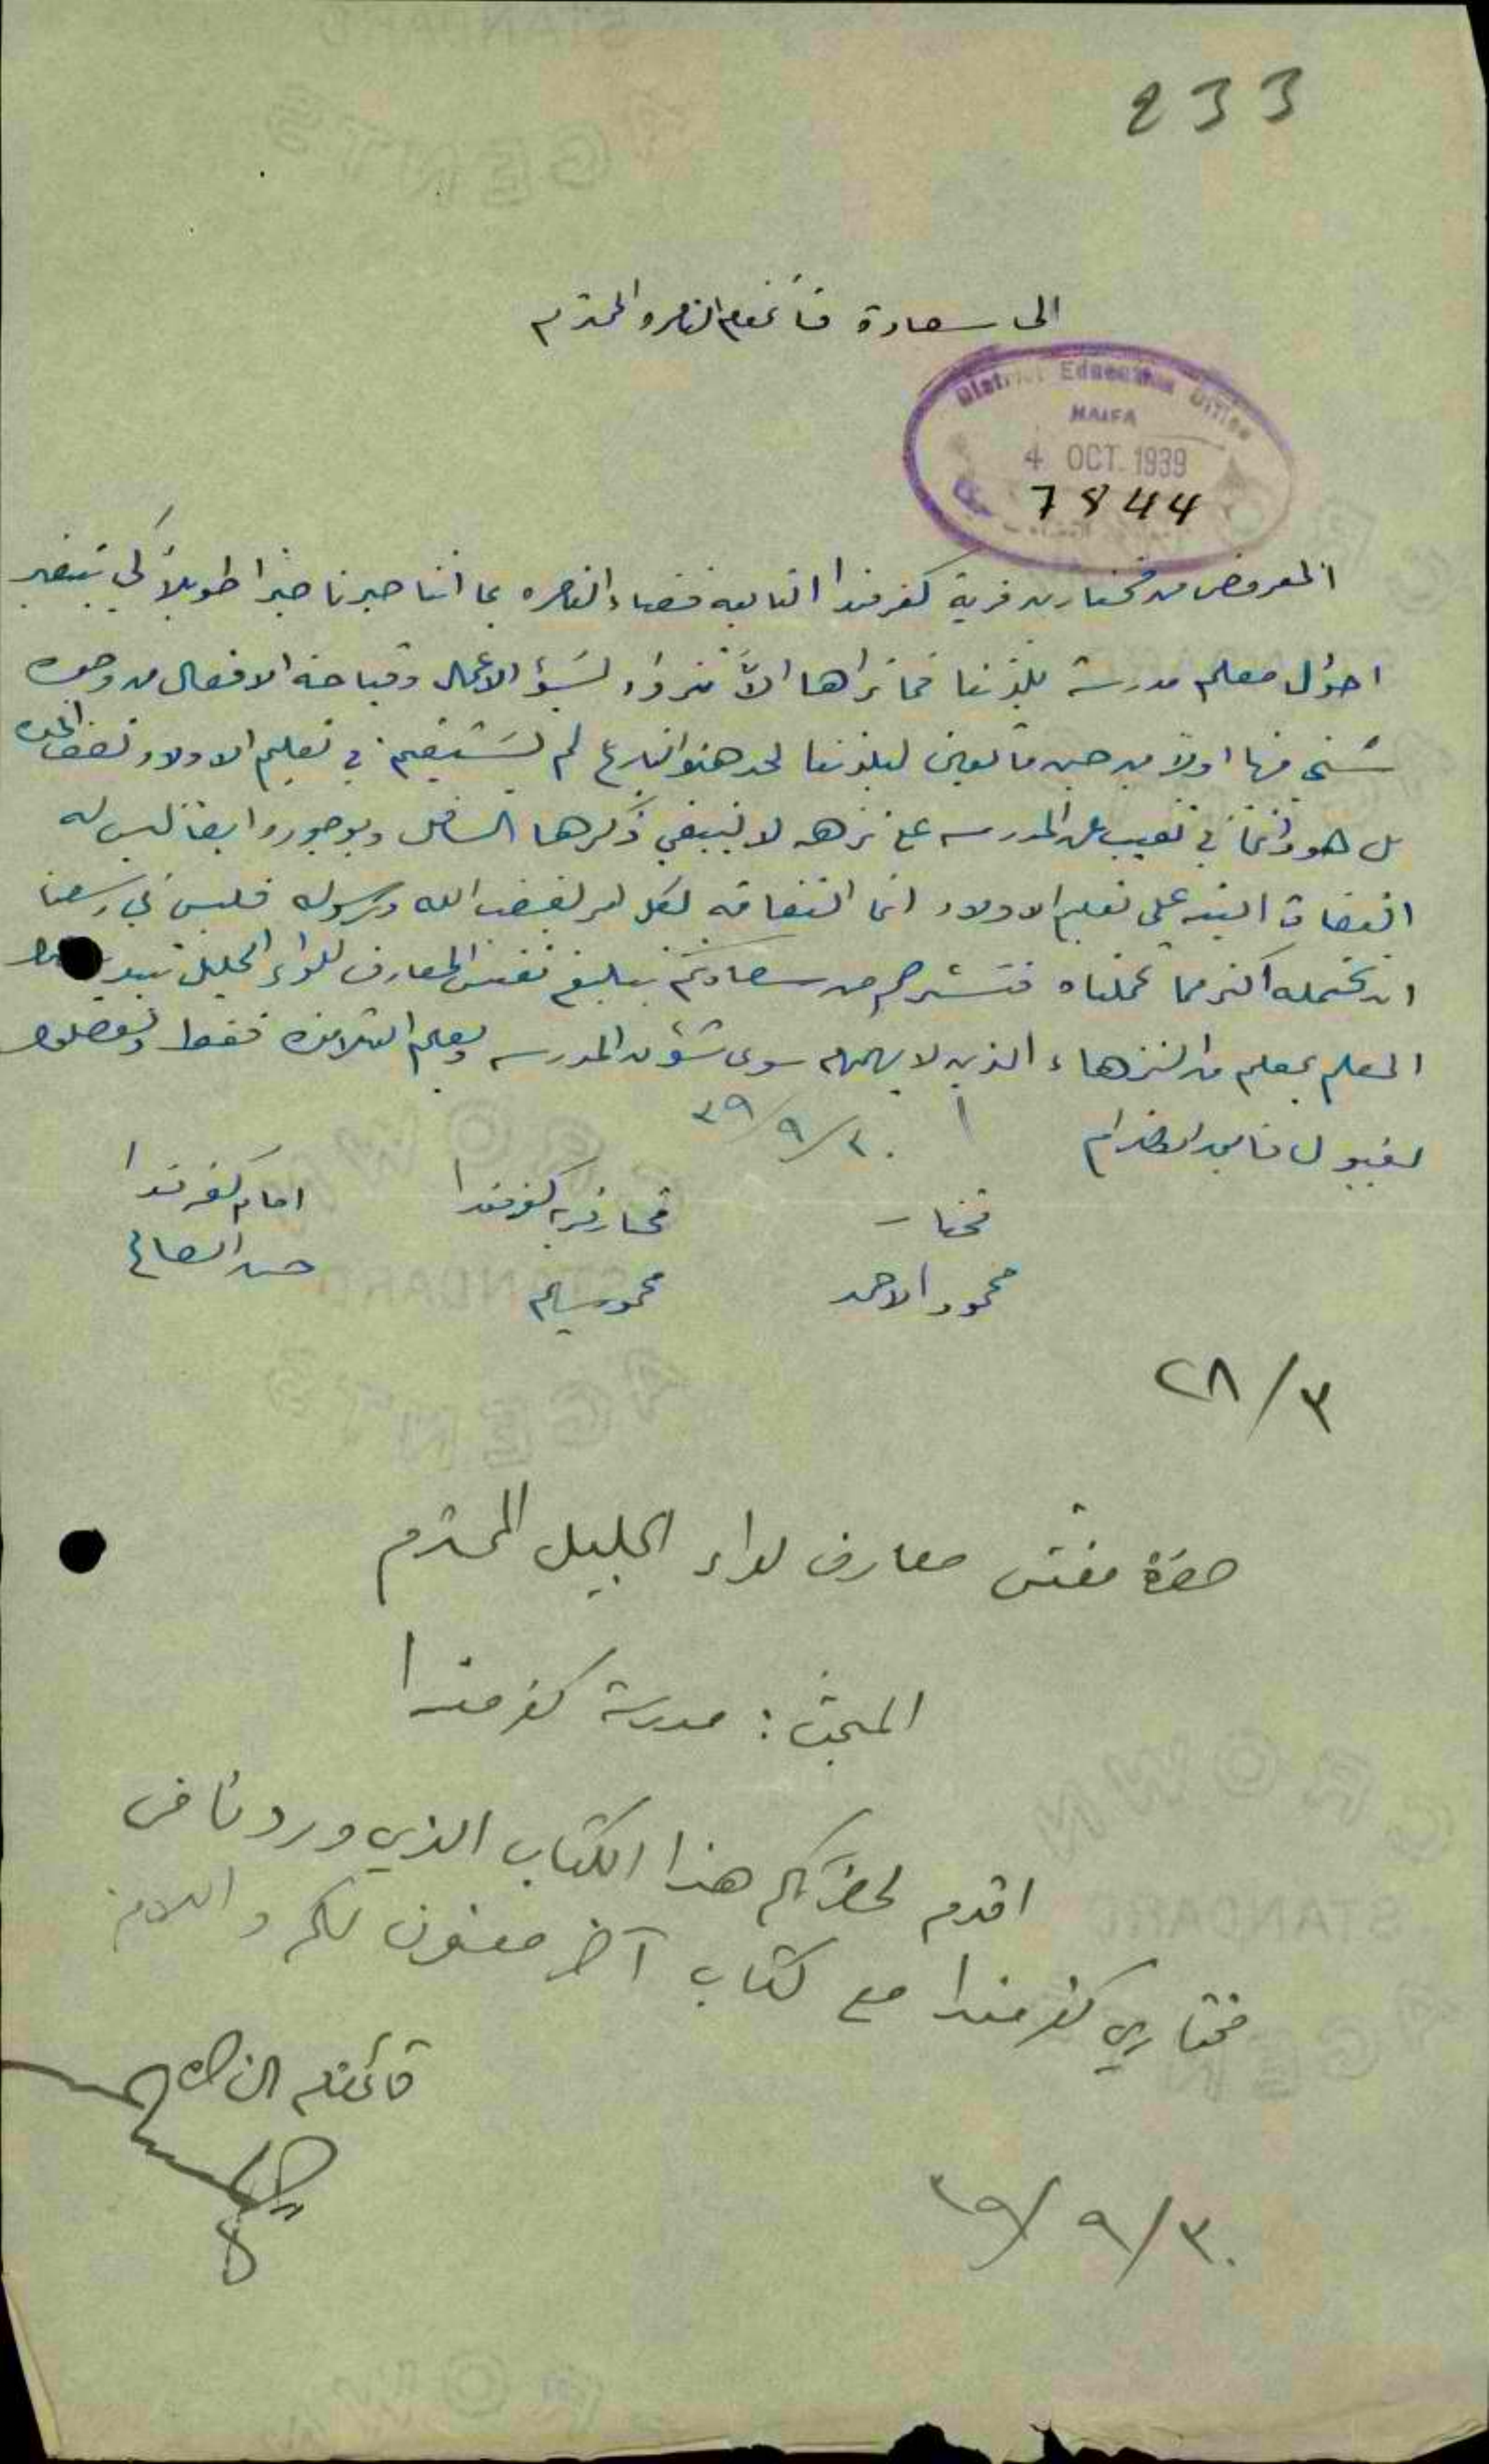 233
الى سعادة قائمقام الناصره المحترم
District Education Office
HAIFA
4 OCT. 1939
7844
المعروض من مختارين قرية كفرمندا التابعه قضاء الناصره بما اننا صبرنا صبراً طويلاً كي تتغير
احوال معلم مدرسة بلدتنا فما نراها الاّ تزداد لسوء الاعمال وقباحة الافعال من وجوه
شتى منها اولاً من حين ما تعين لبلدتنا لحد هذا التاريخ لم يستقيم في تعليم الاولاد نصف المده
بل هو دائماً في تغيب عن المدرسه لا ينبغي ذكرها وبوجوده ايضاً ليس له
التفات البته على تعليم الاولاد انما التفاته لكل امر لغضب الله ورسوله فليس في وسعنا
ان نحتمله اكثر مما تحملناه فنسترحم من سعادتكم بتبليغ مفتش المعارف للواء الجليل تبديل هذا
المعلم بمعلم من النزهاء الذين لا يهمهم سوى شؤون المدرسه وتعليم التلامذه فقط وتفضلوا
لقبول فائق الاحترام
٣٩/٩/٢٠
مختار
محمود الاحمد
مختار قرية كفرمندا
محمود سليم
امام كفرمندا
حسن الصالح
٢٨/٣
حضرة مفتش معارف لواء الجليل المحترم
المبحث : مدرسة كفرمندا
اقدم لحضرتكم هذا الكتاب الذي وردنا من
مختاري كفرمندا مع كتاب آخر معنون لكم واللامر
قائمقام الناصره
٣٩/٩/٣٠